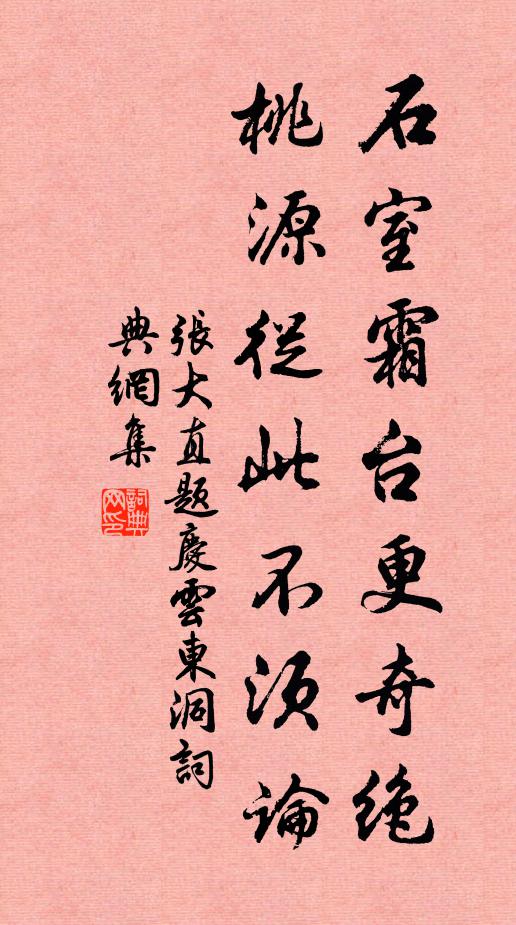 石室霜台更奇绝
桃源從此不須論
張大直题慶雲東洞詞
典網集
詞典網印